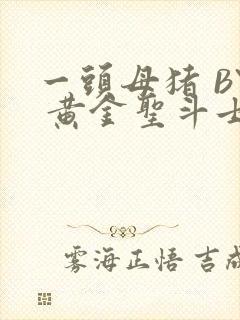 一頭母猪 BY
黄金聖斗士
雾海正悟 吉成